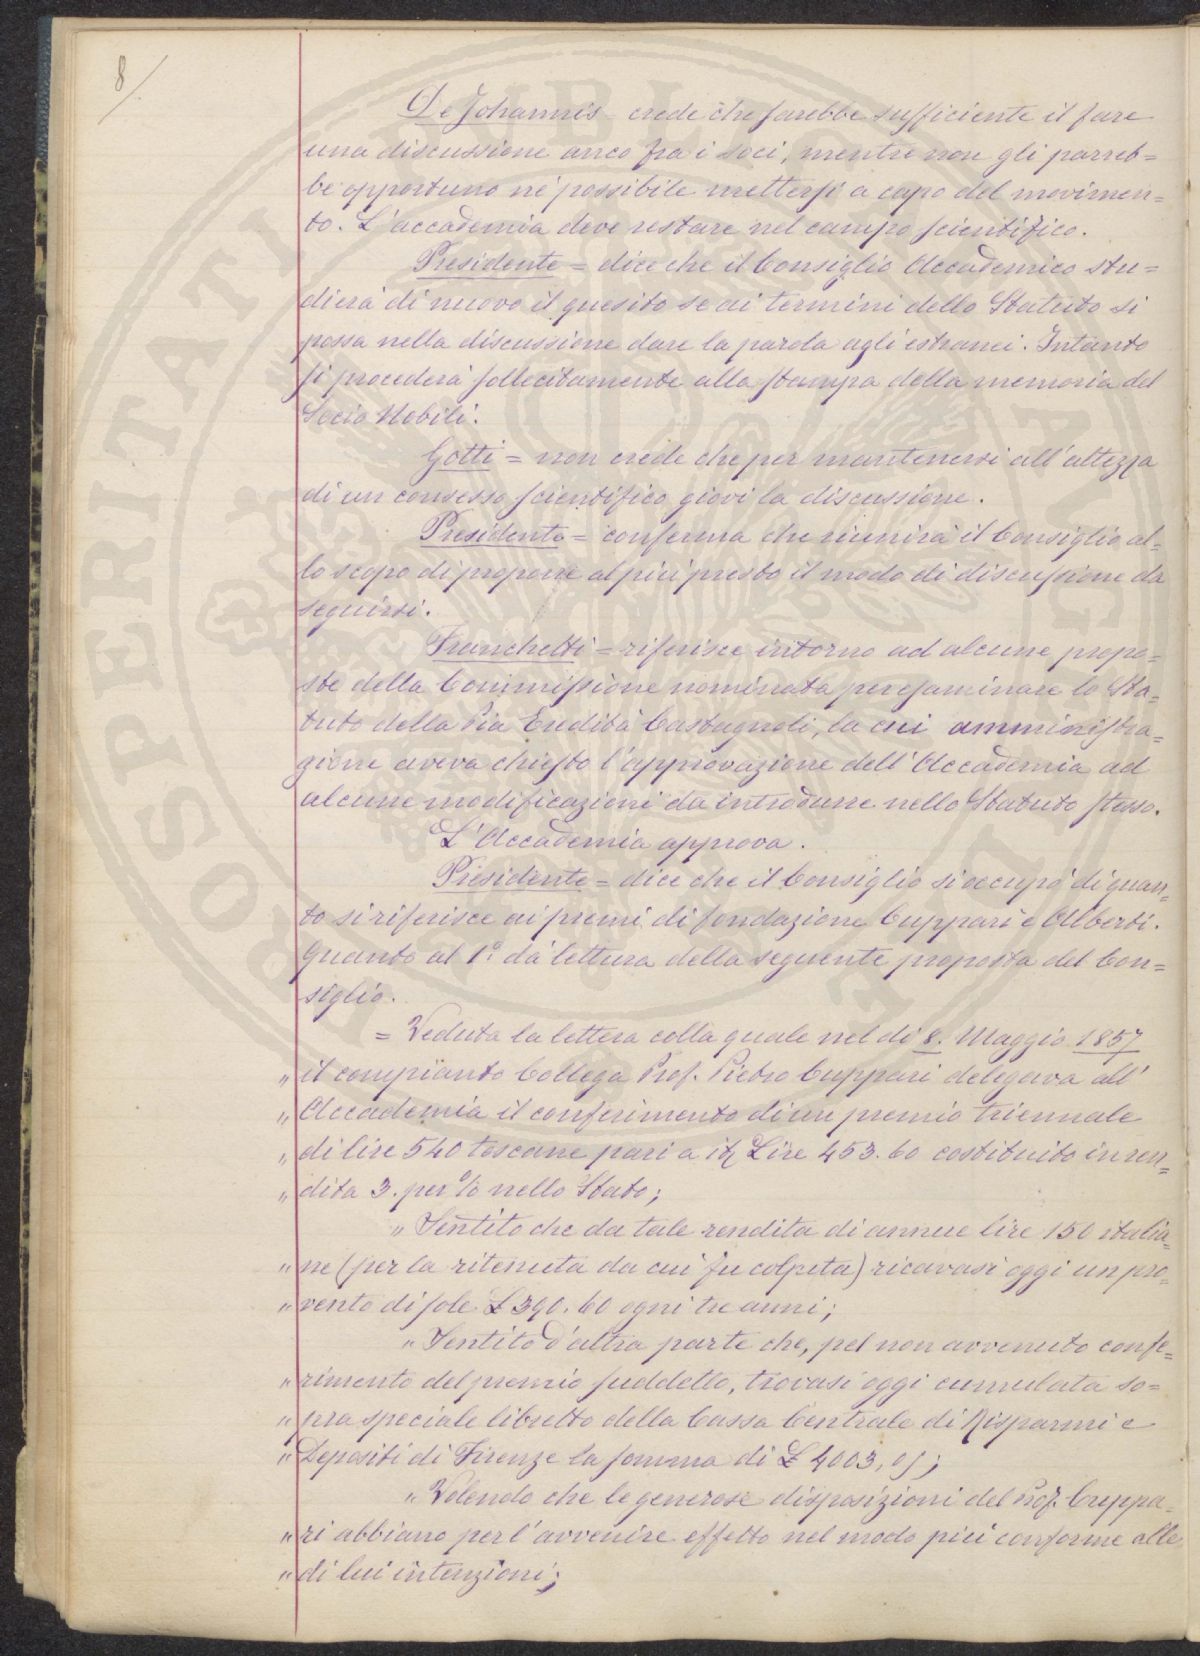 8/
De Johannis crede che sarebbe sufficiente il fare
una discussione anco fra i soci, mentre non gli parreb=
be opportuno nè possibile mettersi a capo del movimen=
to. L'accademia deve restare nel campo scientifico.
Presidente = dice che il Consiglio Accademico stu=
dierà di nuovo il quesito se ai termini dello Statuto si
possa nella discussione dare la parola agli estranei. Intanto
si procederà sollecitamente alla stampa della memoria del
Socio Nobili.
Gotti = non crede che per mantenersi all'altezza
di un consesso scientifico giovi la discussione.
Presidente = conferma che riunirà il Consiglio al=
lo scopo di proporre al più presto il modo di discussione da
seguirsi.
Franchetti = riferisce intorno ad alcune propo=
ste della Commissione nominata per esaminare lo Sta=
tuto della Pia Eredità Castagnoli, la cui amministra=
zione aveva chiesto l'approvazione dell'Accademia ad
alcune modificazioni da introdurre nello Statuto stesso.
L'Accademia approva.
Presidente = dice che il Consiglio si occupò di quan=
to si riferisce ai premi di fondazione Cuppari e Alberti.
Quanto al 1º dà lettura della seguente proposta del Con=
siglio.
= Veduta la lettera colla quale nel dì 8. Maggio 1857
" il compianto Collega Prof. Pietro Cuppari delegava all'
" Accademia il conferimento di un premio triennale
" di lire 540 toscane pari a it Lire 453.60 costituito in ren=
" dita 3. per % nello Stato;
" Sentito che da tale rendita di annue lire 150 italia=
" ne (per la ritenuta da cui fu colpita) ricavasi oggi un pro=
" vento di sole £ 390.60 ogni tre anni;
" Sentito d'altra parte che, pel non avvenuto confe=
" rimento del premio suddetto, trovasi oggi cumulata so=
" pra speciale libretto della Cassa Centrale di Risparmi e
" Depositi di Firenze la somma di £ 4003,05;
" Volendo che le generose disposizioni del Prof. Cuppa=
" ri abbiano per l'avvenire effetto nel modo più conforme alle
" di lui intenzioni;
PROSPERITATI PUBLICAE AUGENDAE